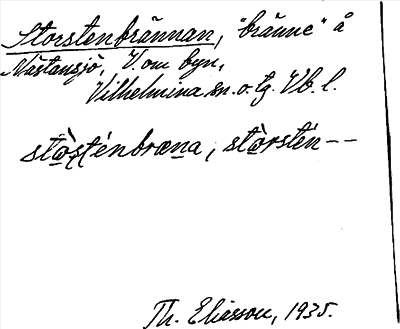 Storstenbrännan, "bränne" å
Nästansjö, V. om byn,
Vilhelmina sn. o. tg. Vb. l.
stòsténbræna, stòrstén--
Th. Eliasson, 1935.